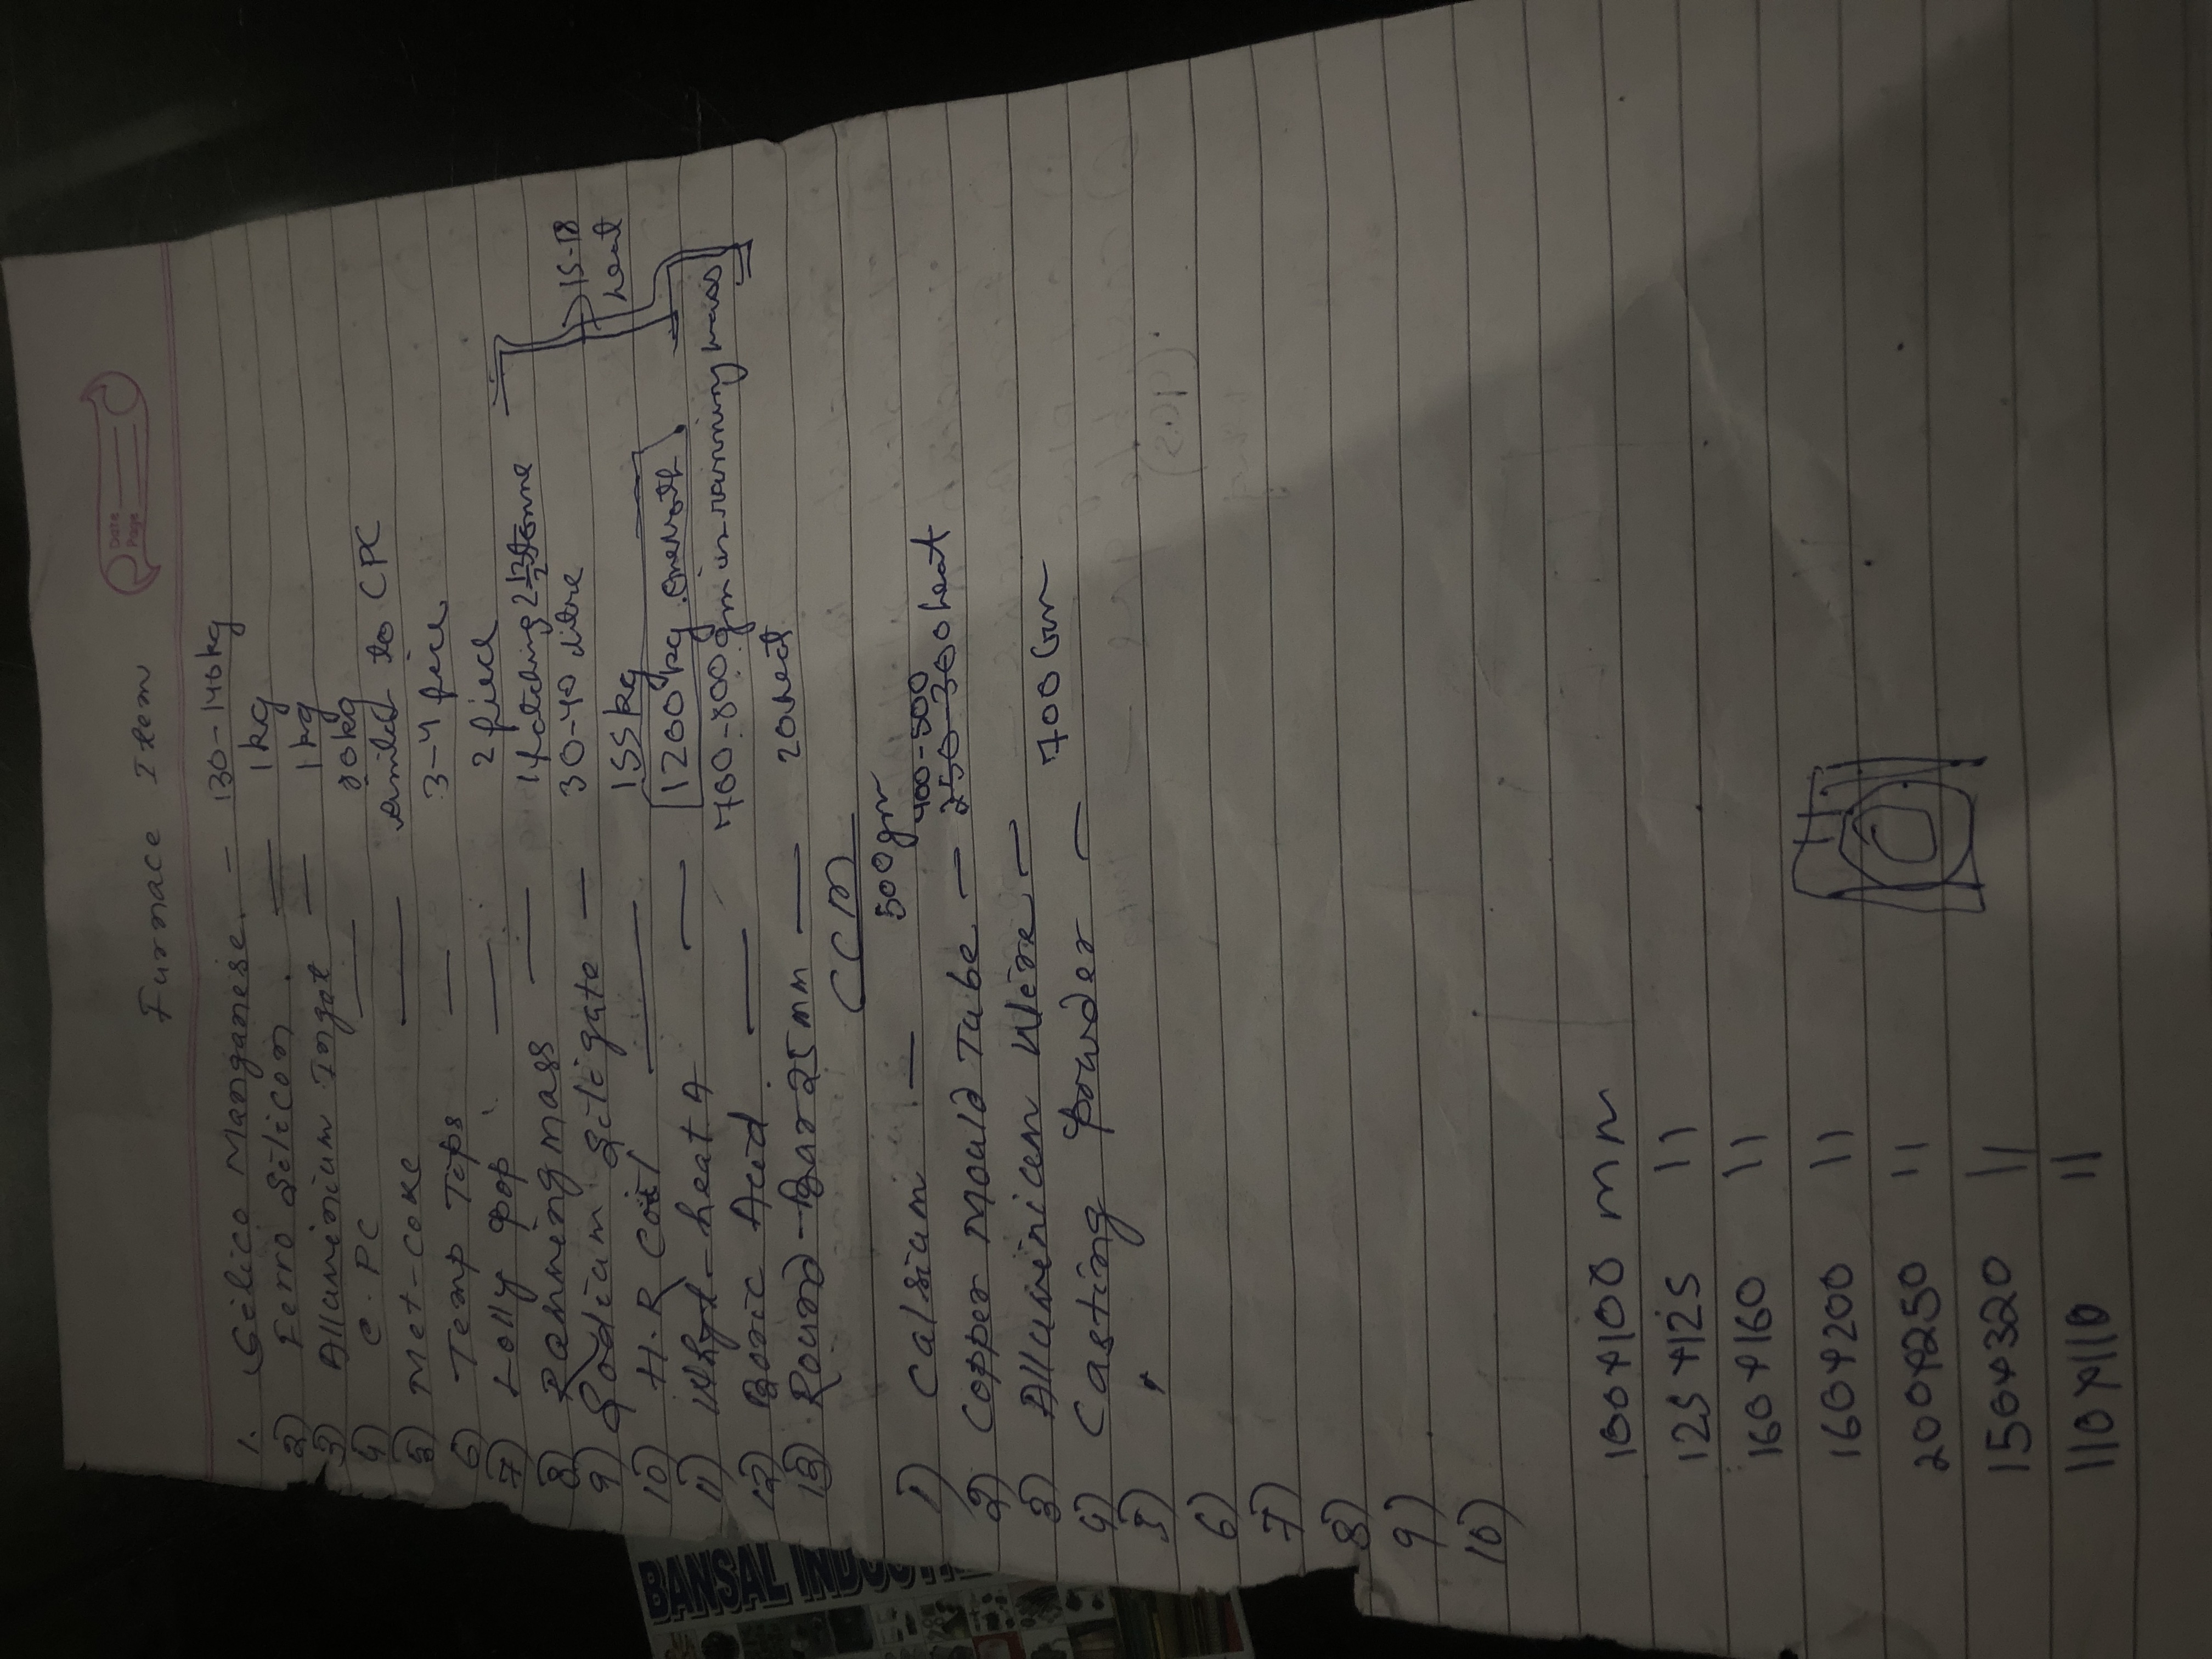 Date
Page
Furnace Item
1. Silico Manganese. — 130-140kg
2) Ferro Silicon. — 1kg
3) Alluminium Ingot — 1kg
4) C.PC — kg
5) Met-coke — similar to CPC
6) Temp Tips — 3-4 piece
7) Lolly pop — 2 piece
8) Ramming mass — 1 tonne
9) Sodium Siligate — 30-40 litre
10) H.R Coil — 155kg
11) heat A — 1200kg
12) Boric Acid. — 700-800gm in ramming mass
15-18
heat
13) Round-Bar 25mm — 20heat
CCM
1) Calsium — 500gm
400-500
2) Copper Mould Tube — 250-300 heat
3) Alluminium Wire —
4) Casting Powder — 700 Gm
5)
6)
7)
8)
9)
10)
100x100 mm
125x125 11
160x160 11
160x200 11
200x250 11
150x320 11
110x110 11
BANSAL